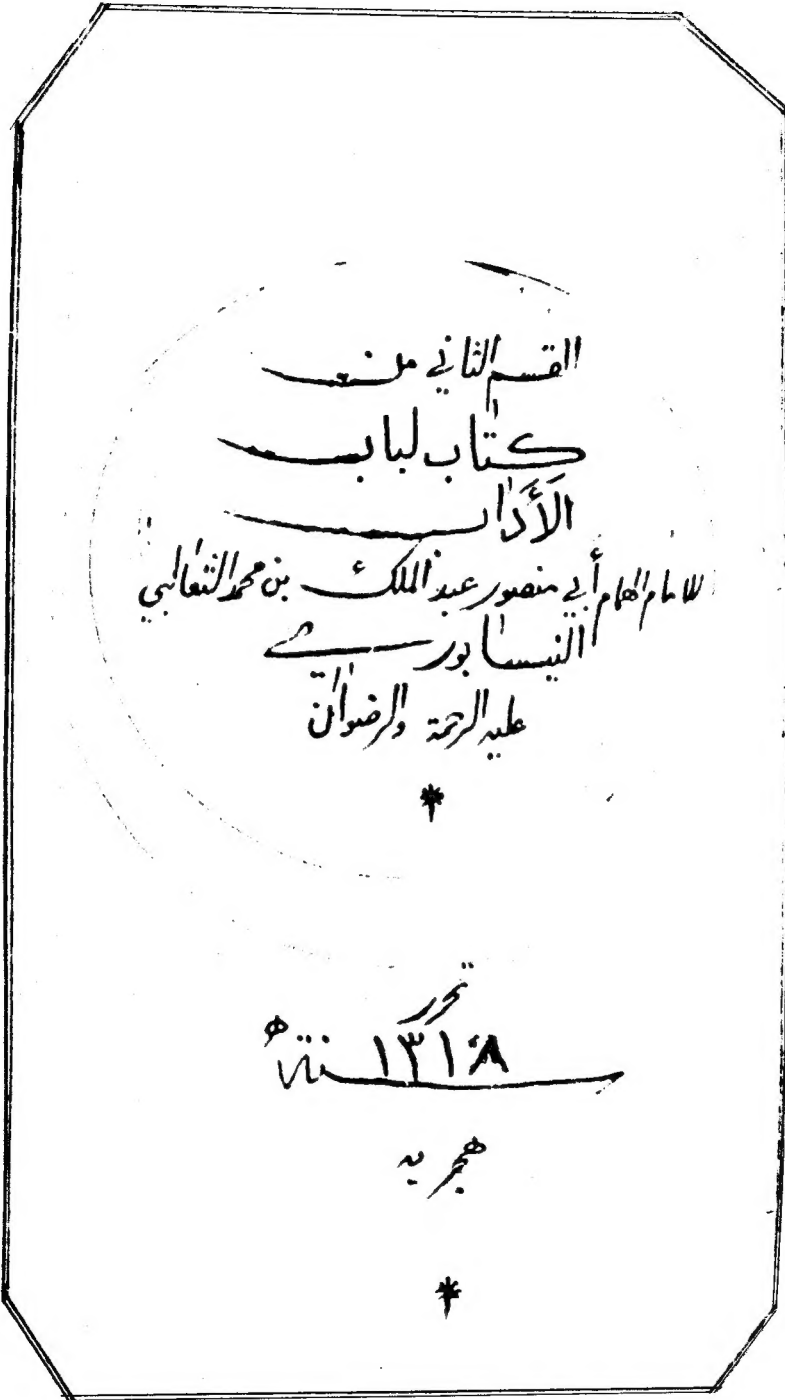 القسم الثاني من
كتاب لباب
الأداب
للامام الهمام أبي منصور عبد الملك بن محمد الثعالبي
النيسابوري
عليه الرحمة والرضوان
تحرر
سنة ١٣١٨ ه
هجريه